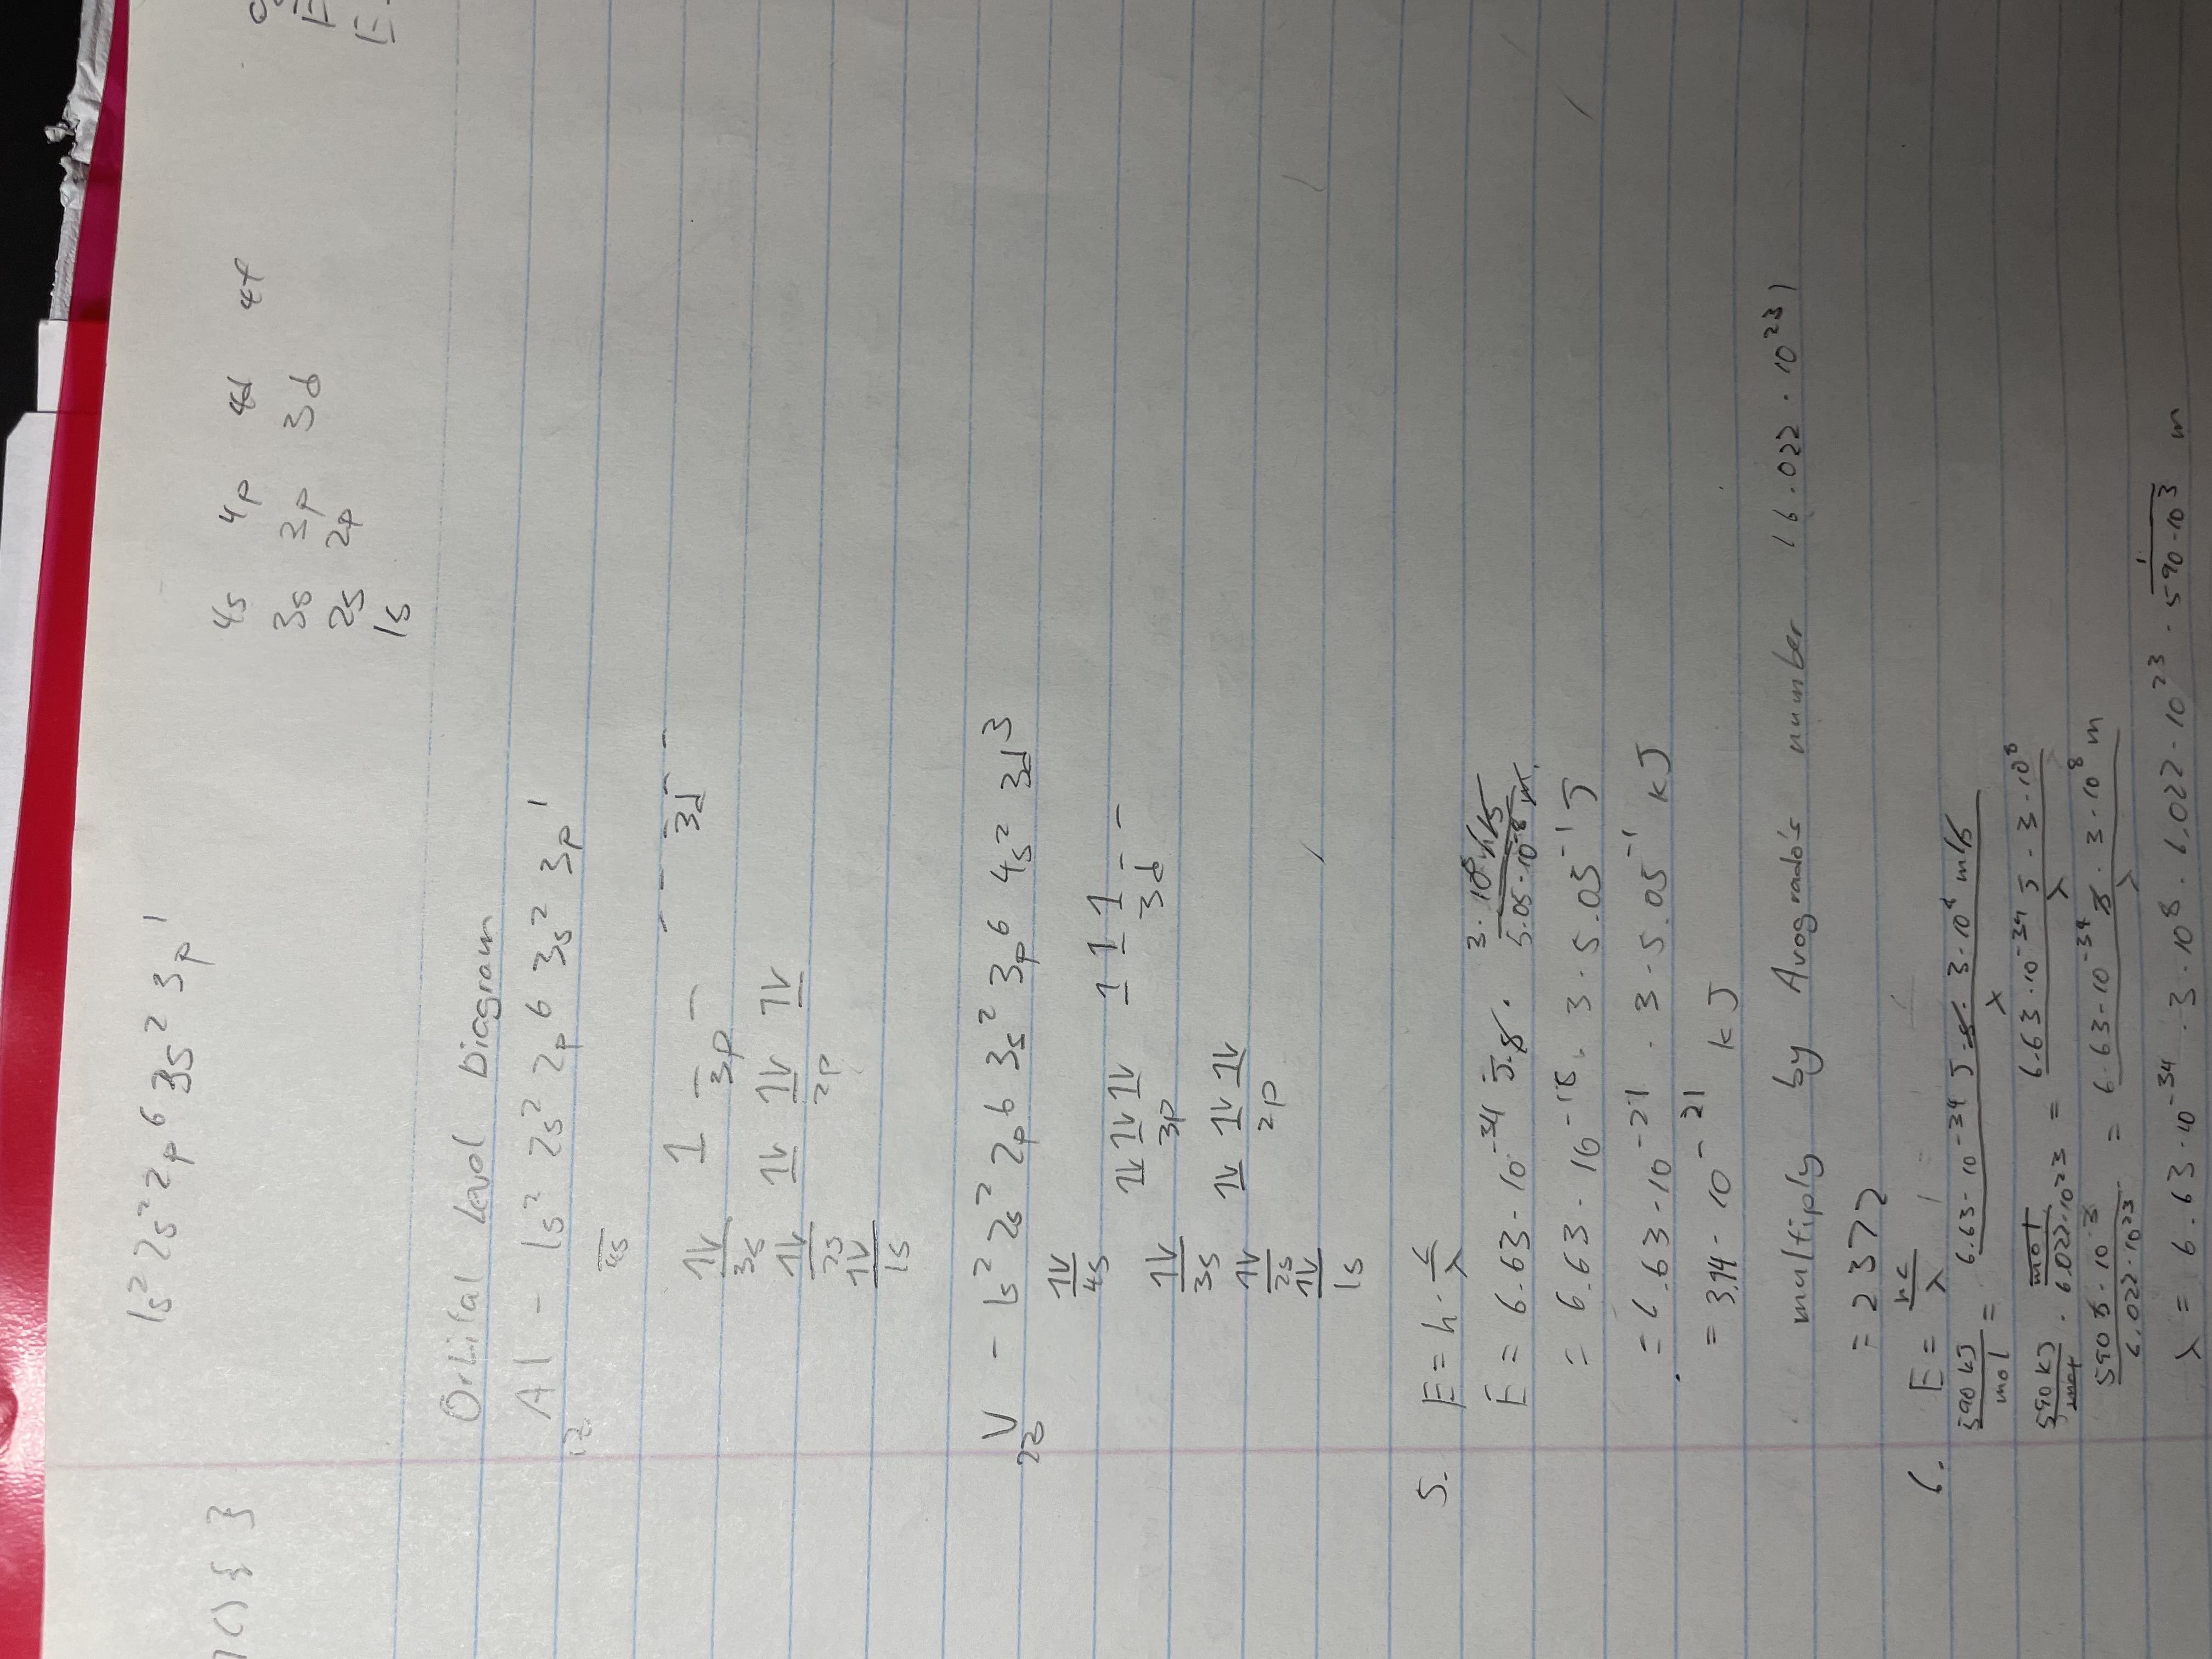 1s² 2s² 2p⁶ 3s² 3p¹
() { }
4s 4p 4d 4f
3s 3p 3d
2s 2p
1s
E
Orbital Level Diagram
Al - 1s² 2s² 2p⁶ 3s² 3p¹
4s
1
3d
1↓
3p
3s
1↓ 1↓ 1↓
1↓
2p
2s
1↓
1s
V - 1s² 2s² 2p⁶ 3s² 3p⁶ 4s² 3d³
23
1↓
4s
1↓ 1↓ 1↓ 1 1 1
3p 3d
1↓
3s
1↓ 1↓ 1↓
1↓ 2p
2s
1↓
1s
5. E = h · c/λ
E = 6.63 · 10⁻³⁴ J·s · 3 · 10⁸ m/s / 5.05 · 10⁻⁸ m
= 6.63 · 10⁻¹⁸ · 3 · 5.05⁻¹ J
= 6.63 · 10⁻²¹ · 3 · 5.05⁻¹ kJ
= 3.94 · 10⁻²¹ kJ
multiply by Avogrado's number (6.022 · 10²³)
= 2372
6. E = hc/λ
590 kJ/mol = 6.63 · 10⁻³⁴ J·s · 3 · 10⁸ m/s / λ
590 kJ/mol · mol/6.022 · 10²³ = 6.63 · 10⁻³⁴ J · 3 · 10⁸ / λ
590 J · 10³ / 6.022 · 10²³ = 6.63 · 10⁻³⁴ J · 3 · 10⁸ m / λ
λ = 6.63 · 10⁻³⁴ · 3 · 10⁸ · 6.022 · 10²³ · 1/590 · 10³ m